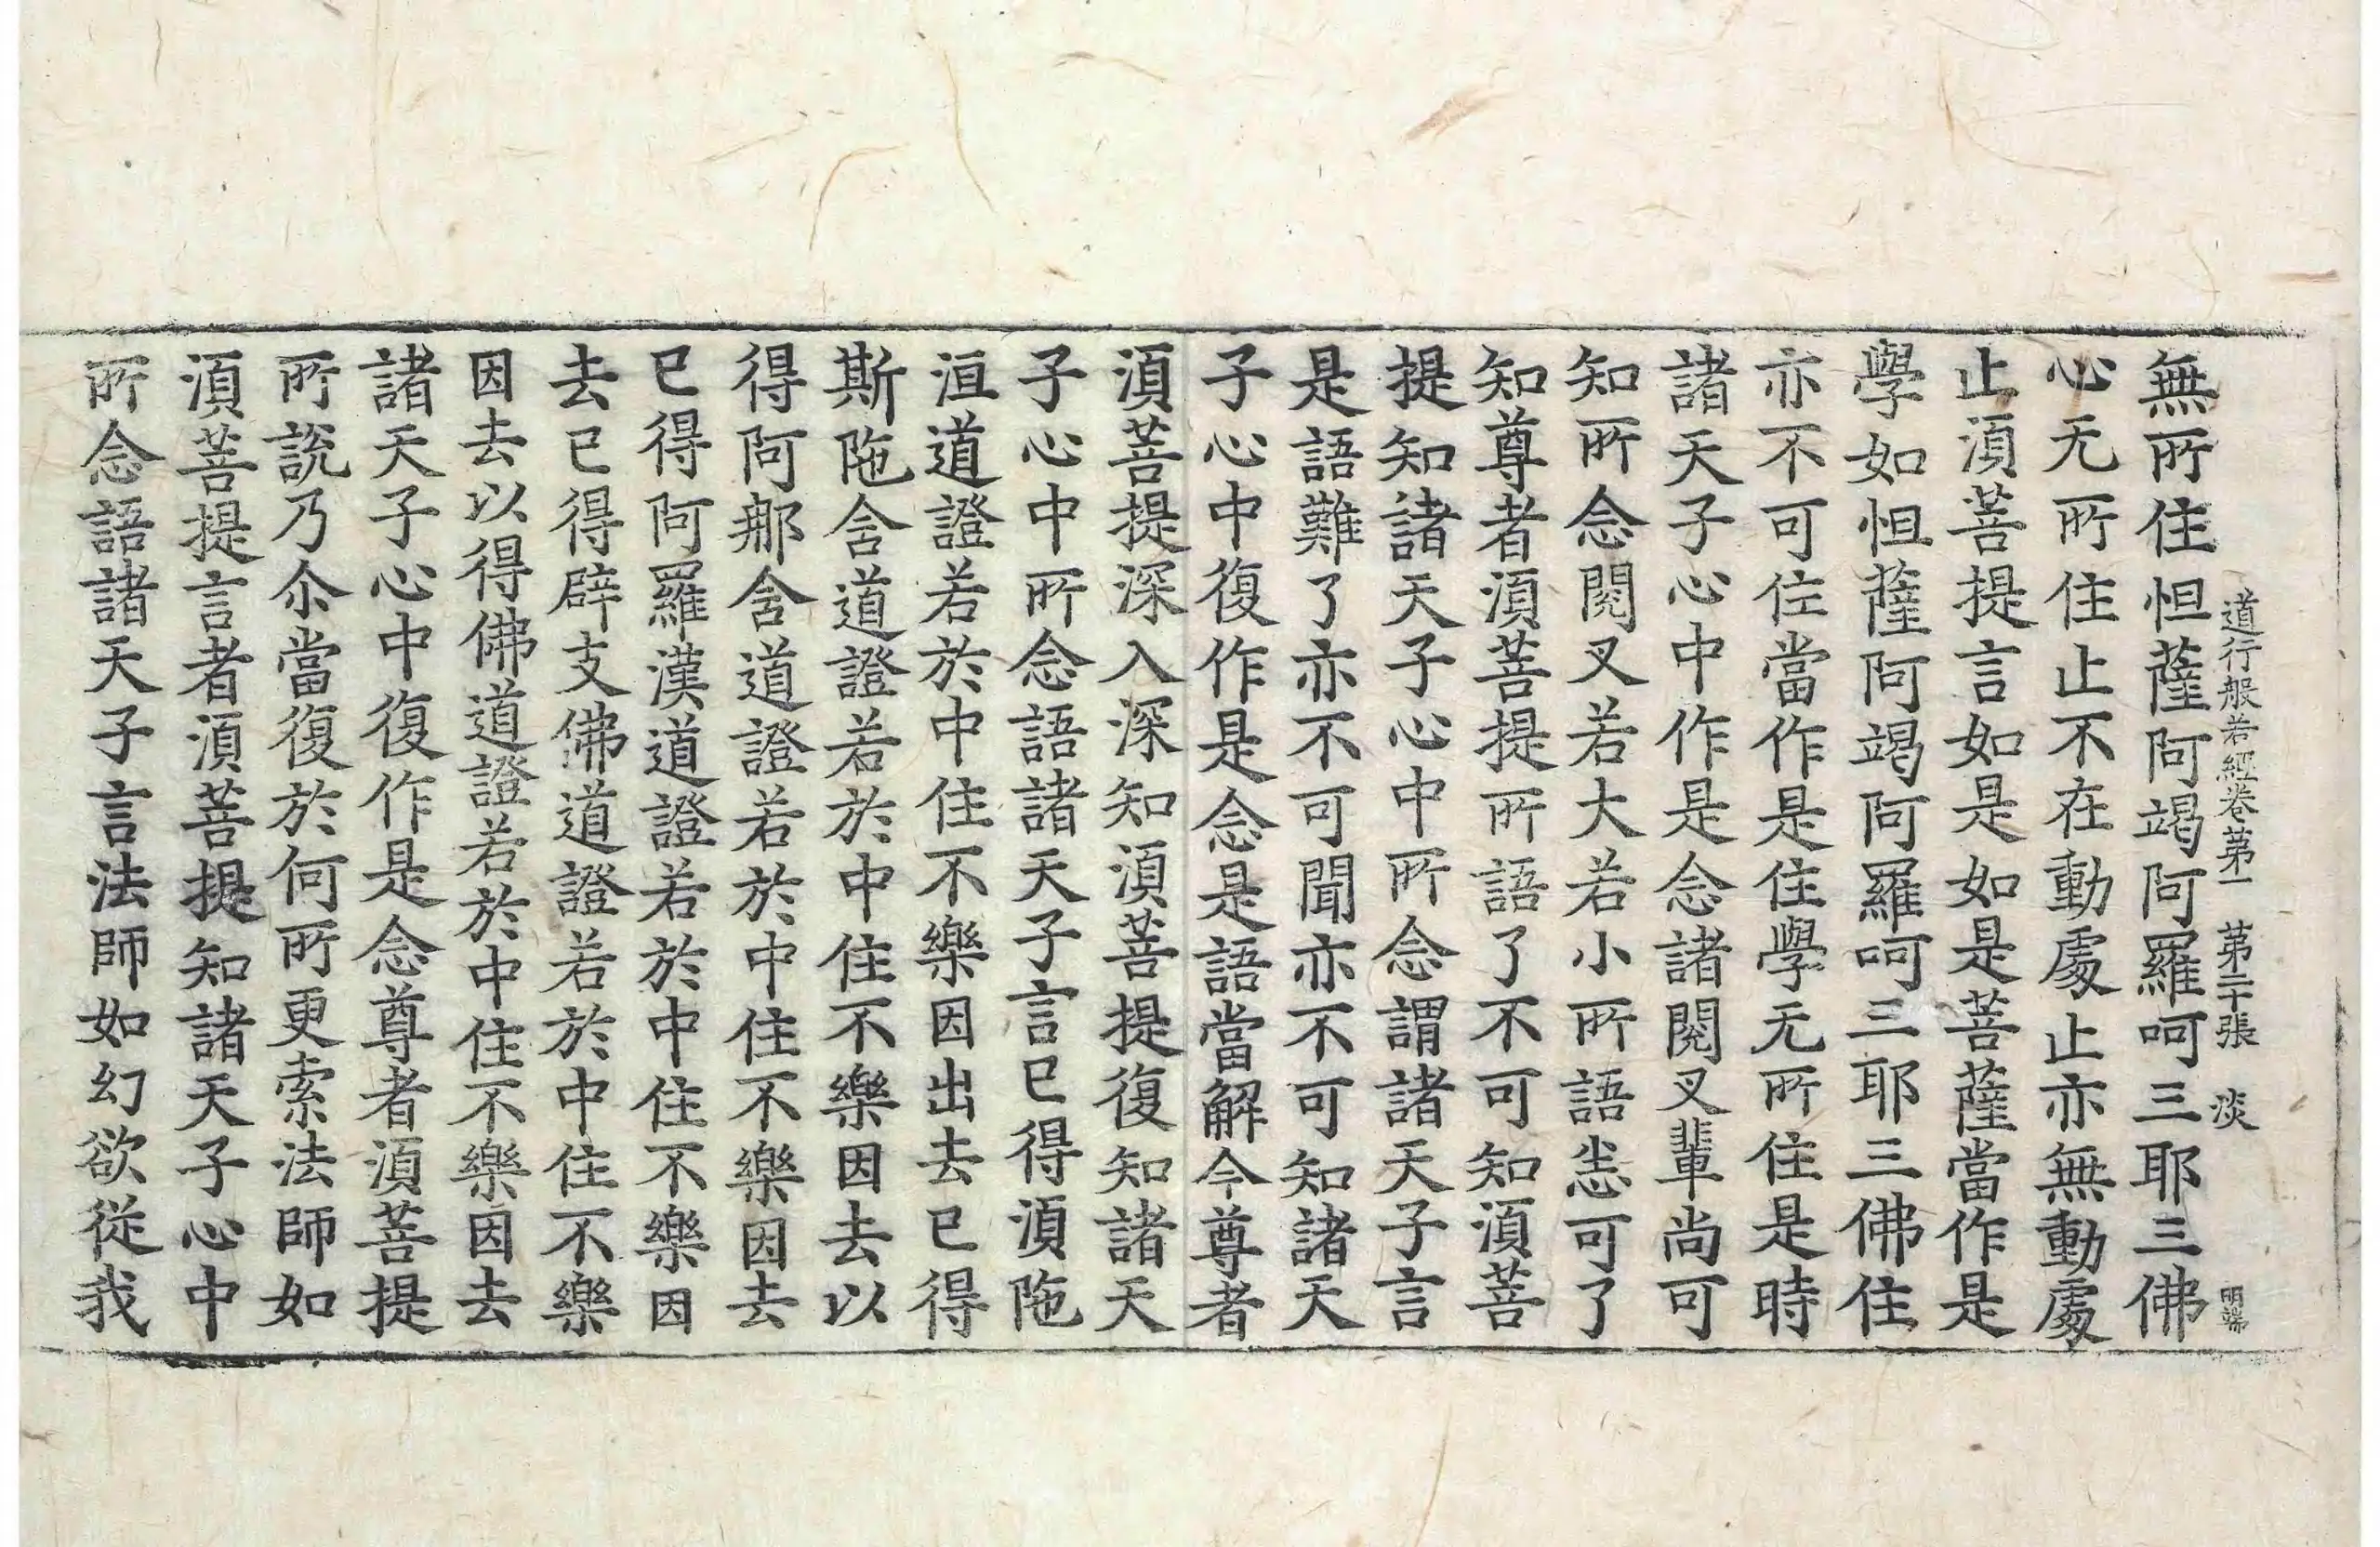 道行般若經卷第一 第二十張 淡
無所住怛薩阿竭阿羅呵三耶三佛
心无所住止不在動處止亦無動處
止須菩提言如是如是菩薩當作是
學如怛薩阿竭阿羅呵三耶三佛住
亦不可住當作是住學无所住是時
諸天子心中作是念諸閱叉輩尚可
知所念閱叉若大若小所語悉可了
知尊者須菩提所語了不可知須菩
提知諸天子心中所念謂諸天子言
是語難了亦不可聞亦不可知諸天
子心中復作是念是語當解今尊者
須菩提深入深知須菩提復知諸天
子心中所念語諸天子言已得須陁
洹道證若於中住不樂因出去已得
斯陁含道證若於中住不樂因去以
得阿那含道證若於中住不樂因去
已得阿羅漢道證若於中住不樂因
去已得辟支佛道證若於中住不樂
因去以得佛道證若於中住不樂因去
諸天子心中復作是念尊者須菩提
所說乃尒當復於何所更索法師如
須菩提言者須菩提知諸天子心中
所念語諸天子言法師如幻欲從我